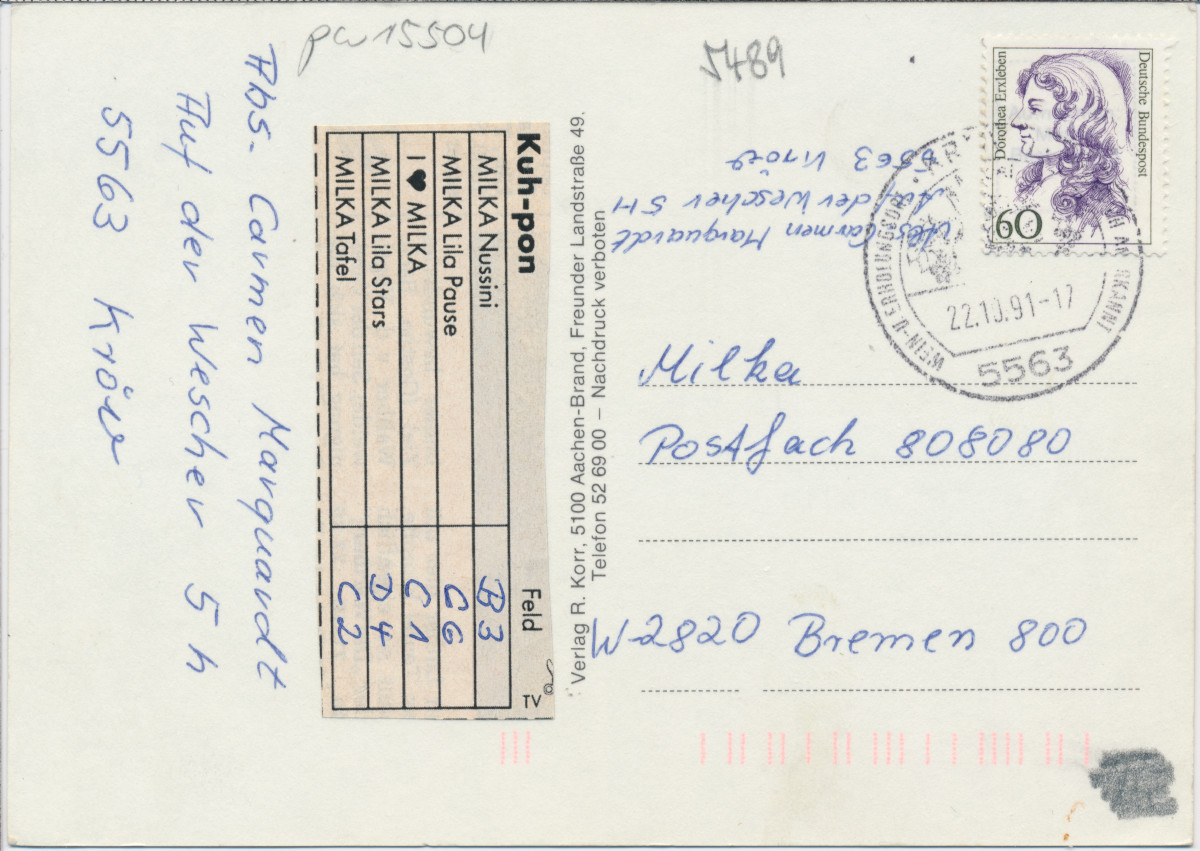 pw15504
5489
Abs. Carmen Marquardt
Auf der Wescher 5 h
5563 Kröv
Kuh-pon Feld
MILKA Nussini B3
MILKA Lila Pause C6
I ♥ MILKA C1
MILKA Lila Stars D4
MILKA Tafel C2
TV
Verlag R. Korr, 5100 Aachen-Brand, Freunder Landstraße 49.
Telefon 52 69 00 – Nachdruck verboten
Carmen Marquardt
Auf der Wescher 5H
5563 Kröv
Deutsche Bundespost
Dorothea Erxleben
60
WEIN-U ERHOLUNGSORT
22.10.91-17
5563
Milka
Postfach 808080
W-2820 Bremen 800